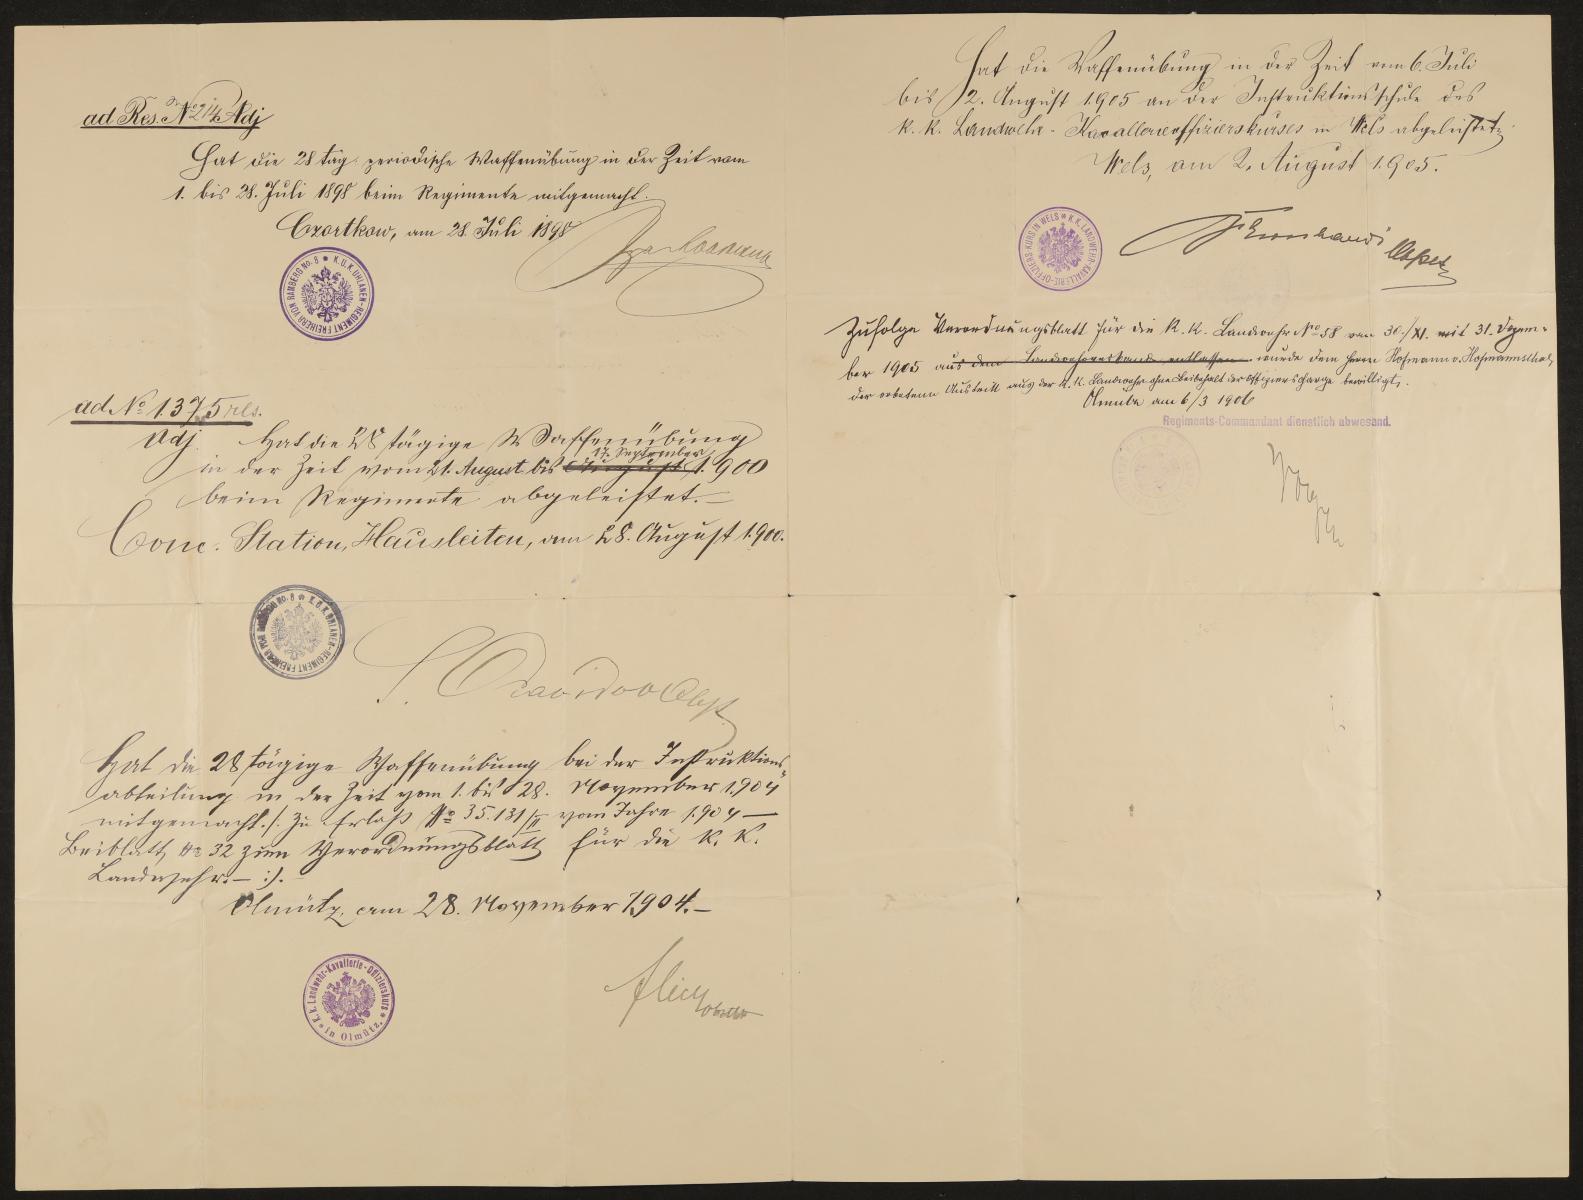 ad Res. No 214 Adj
Hat die 28 täg. periodische Waffenübung in der Zeit vom
1. bis 28. Juli 1898 beim Regimente mitgemacht.
Czortkow, am 28. Juli 1898
K.U.K. UHLANEN-REGIMENT FREIHERR VON RAMBERG No. 8
ad No 1375 res.
Adj. Hat die 28 tägige Waffenübung
17. September
in der Zeit vom 21. August bis August 1.900
beim Regimente abgeleistet.
Conc. Station, Hausleiten, am 28. August 1.900.
K.U.K. UHLANEN-REGIMENT FREIHERR VON RAMBERG No. 8
Obst
Hat die 28 tägige Waffenübung bei der Instruktions
abteilung in der Zeit vom 1. bis 28. November 1.904
mitgemacht ./. Zu Erlaß No 35.131/II vom Jahre 1.904 —
Beiblatt No 32 zum Verordnungsblatt für die K. K.
Landwehr. — :/.
Olmütz, am 28. November 1904. —
K.k. Landwehr-Kavallerie-Offizierskurs in Olmütz.
Hat die Waffenübung in der Zeit vom 6. Juli
bis 2. August 1.905 an der Instruktionsschule des
K. K. Landwehr-Kavallerieoffizierskurses in Wels abgeleistet.
Wels, am 2. August 1.905.
K.K. LANDWEHR-KAVALLERIE-OFFIZIERS-KURS IN WELS
Zufolge Verordnungsblatt für die K. K. Landwehr No 58 vom 30./XI. mit 31. Dezem-
ber 1905 aus dem Landwehrverbande entlassen wurde dem Herrn Hofmann v. Hofmannsthal,
der erbetene Austritt aus der k. k. Landwehr ohne Beibehalt der Offizierscharge bewilligt.
Olmütz am 6/3 1906
Regiments-Commandant dienstlich abwesend.